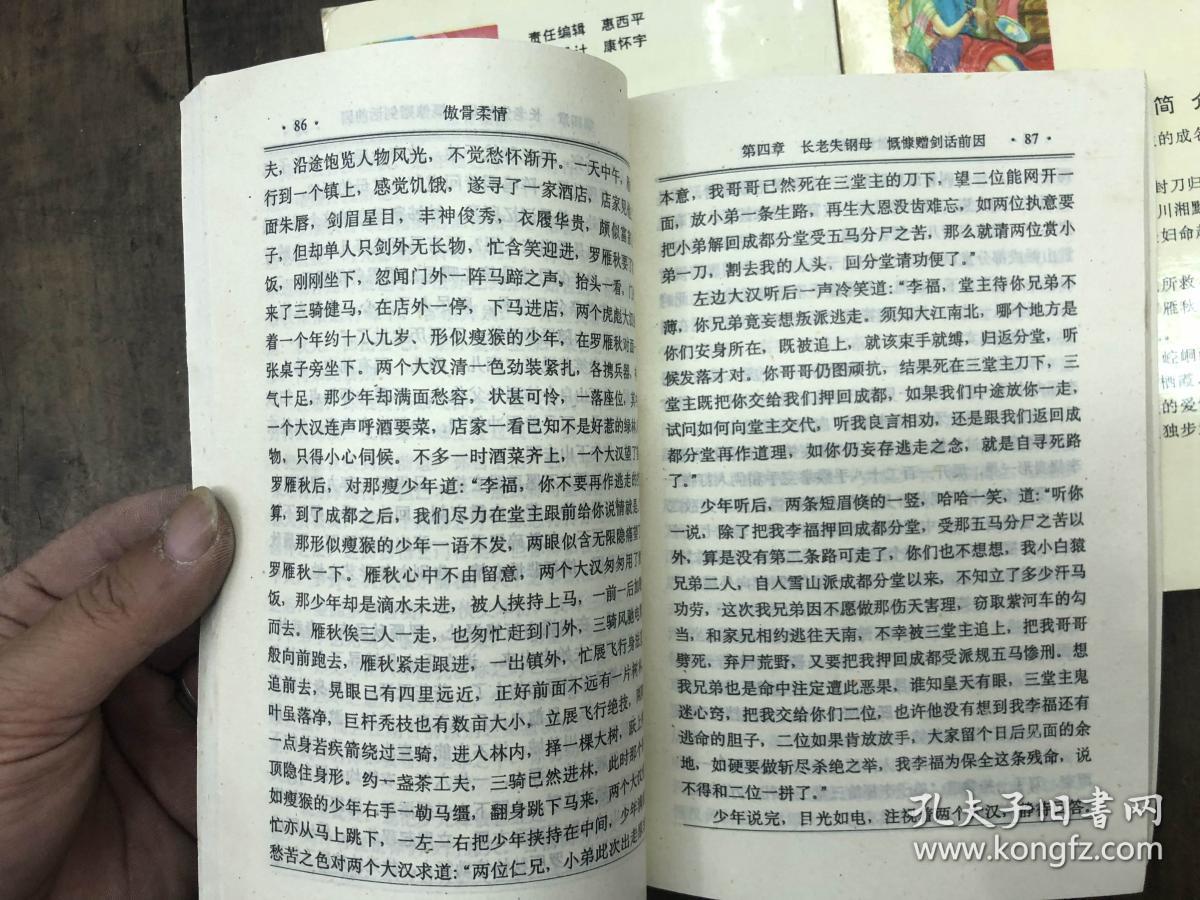 责任编辑 惠西平
计 康怀宇
简 介
的成名
封刀归
川湘黔
妇命
所救
雁秋
崆峒
栖霞
的爱
独步
·86· 傲骨柔情
夫，沿途饱览人物风光，不觉愁怀渐开。一天中午，
行到一个镇上，感觉饥饿，遂寻了一家酒店，店家见他
面朱唇，剑眉星目，丰神俊秀，衣履华贵，颇似富
子，但却单人只剑外无长物，忙含笑迎进，罗雁秋要了
饭，刚刚坐下，忽闻门外一阵马蹄之声，抬头一看，门
来了三骑健马，在店外一停，下马进店，两个虎彪大汉
着一个年约十八九岁、形似瘦猴的少年，在罗雁秋对面
张桌子旁坐下。两个大汉清一色劲装紧扎，各携兵器，
气十足，那少年却满面愁容，状甚可怜，一落座位，其
一个大汉连声呼酒要菜，店家一看已知不是好惹的绿林
物，只得小心伺候。不多一时酒菜齐上，一个大汉望了
罗雁秋后，对那瘦少年道：“李福，你不要再作逃走的
算，到了成都之后，我们尽力在堂主跟前给你说情就是。
那形似瘦猴的少年一语不发，两眼似含无限隐痛望
罗雁秋一下。雁秋心中不由留意，两个大汉匆匆用了
饭，那少年却是滴水未进，被人挟持上马，一前一后加
而去。雁秋俟三人一走，也匆忙赶到门外，三骑风驰电
般向前跑去，雁秋紧走跟进，一出镇外，忙展飞行身法
追前去，晃眼已有四里远近，正好前面不远有一片树林
叶虽落净，巨杆秃枝也有数亩大小，立展飞行绝技，两
一点身若疾箭绕过三骑，进入林内，择一棵大树，跃上
顶隐住身形。约一盏茶工夫，三骑已然进林，此时那个
如瘦猴的少年右手一勒马缰，翻身跳下马来，两个大汉
忙亦从马上跳下，一左一右把少年挟持在中间，少年满
愁苦之色对两个大汉求道：“两位仁兄，小弟此次出走
第四章 长老失钢母 慨慷赠剑话前因 ·87·
本意，我哥哥已然死在三堂主的刀下，望二位能网开一
面，放小弟一条生路，再生大恩没齿难忘，如两位执意要
把小弟解回成都分堂受五马分尸之苦，那么就请两位赏小
弟一刀，割去我的人头，回分堂请功便了。”
左边大汉听后一声冷笑道：“李福，堂主待你兄弟不
薄，你兄弟竟妄想叛派逃走。须知大江南北，哪个地方是
你们安身所在，既被追上，就该束手就缚，归返分堂，听
候发落才对。你哥哥仍图顽抗，结果死在三堂主刀下，三
堂主既把你交给我们押回成都，如果我们中途放你一走，
试问如何向堂主交代，听我良言相劝，还是跟我们返回成
都分堂再作道理，如你仍妄存逃走之念，就是自寻死路
了。”
少年听后，两条短眉倏的一竖，哈哈一笑，道：“听你
一说，除了把我李福押回成都分堂，受那五马分尸之苦以
外，算是没有第二条路可走了，你们也不想想，我小白猿
兄弟二人，自入雪山派成都分堂以来，不知立了多少汗马
功劳，这次我兄弟因不愿做那伤天害理，窃取紫河车的勾
当，和家兄相约逃往天南，不幸被三堂主追上，把我哥哥
劈死，弃尸荒野，又要把我押回成都受派规五马惨刑。想
我兄弟也是命中注定遭此恶果，谁知皇天有眼，三堂主鬼
迷心窍，把我交给你们二位，也许他没有想到我李福还有
逃命的胆子，二位如果肯放放手，大家留个日后见面的余
地，如硬要做斩尽杀绝之举，我李福为保全这条残命，说
不得和二位一拼了。”
少年说完，目光如电，注视着两个大汉，静待回答。
孔夫子旧书网
www.kongfz.com